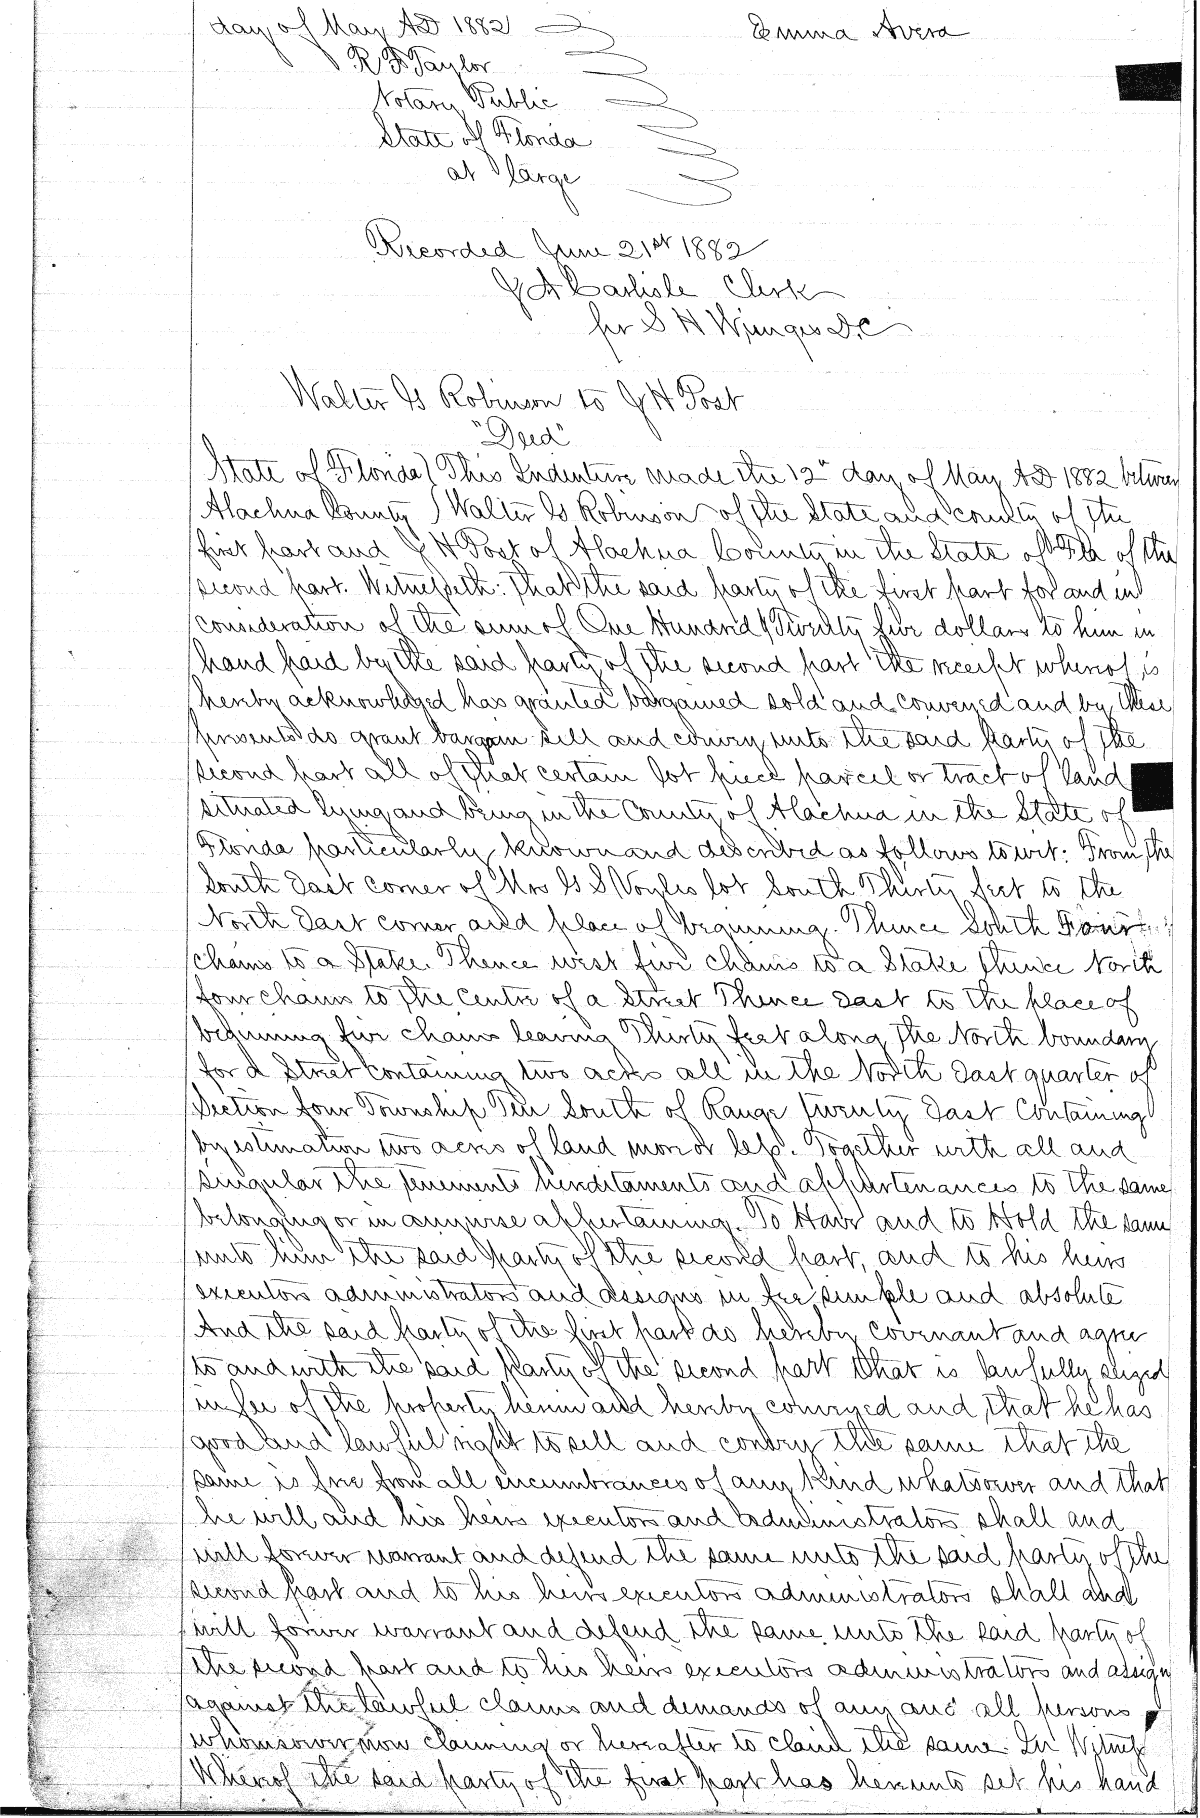 day of May AD 1882
Emma Avera
R F Taylor
Notary Public
State of Florida
at large
Recorded June 21st 1882
J A Carlisle Clerk
per S H Wienges D.C
Walter G Robinson to J H Post
"Deed"
State of Florida ( This Indenture made the 12" day of May AD 1882 between
Alachua County ) Walter G Robinson of the State and county of the
first part and J H Post of Alachua County in the State of Fla of the
second part. Witnesseth: That the said party of the first part for and in
consideration of the sum of One Hundred & Twenty five dollars to him in
hand paid by the said party of the second part the receipt whereof is
hereby acknowledged has granted bargained sold and conveyed and by these
presents do grant bargain sell and convey unto the said Party of the
second part all of that certain lot piece parcel or tract of land
situated lying and being in the County of Alachua in the State of
Florida particularly known and described as follows to wit: From the
South East corner of Mrs G S Voyles lot South Thirty feet to the
North East corner and place of beginning. Thence South Four
chains to a Stake. Thence west five chains to a Stake thence North
four chains to the centre of a Street Thence East to the place of
beginning five chains leaving Thirty feet along the North boundary
for a Street Containing two acres all in the North East quarter of
Section four Township Ten South of Range twenty East Containing
by estimation two acres of land more or less. Together with all and
singular the tenements hereditaments and appurtenances to the same
belonging or in anywise appertaining. To Have and to Hold the same
unto him the said party of the second part, and to his heirs
executors administrators and assigns in fee simple and absolute
And the said party of the first part do hereby covenant and agree
to and with the said Party of the second part that is lawfully seized
in fee of the property herein and hereby conveyed and that he has
good and lawful right to sell and convey the same that the
same is free from all encumbrances of any kind whatsoever and that
he will and his heirs executors and administrators shall and
will forever warrant and defend the same unto the said party of the
second part and to his heirs executors administrators shall and
will forever warrant and defend the same unto the said party of
the second part and to his heirs executors administrators and assign
against the lawful claims and demands of any and all persons
whomsoever now claiming or hereafter to claim the same. In Witness
Whereof the said party of the first part has hereunto set his hand